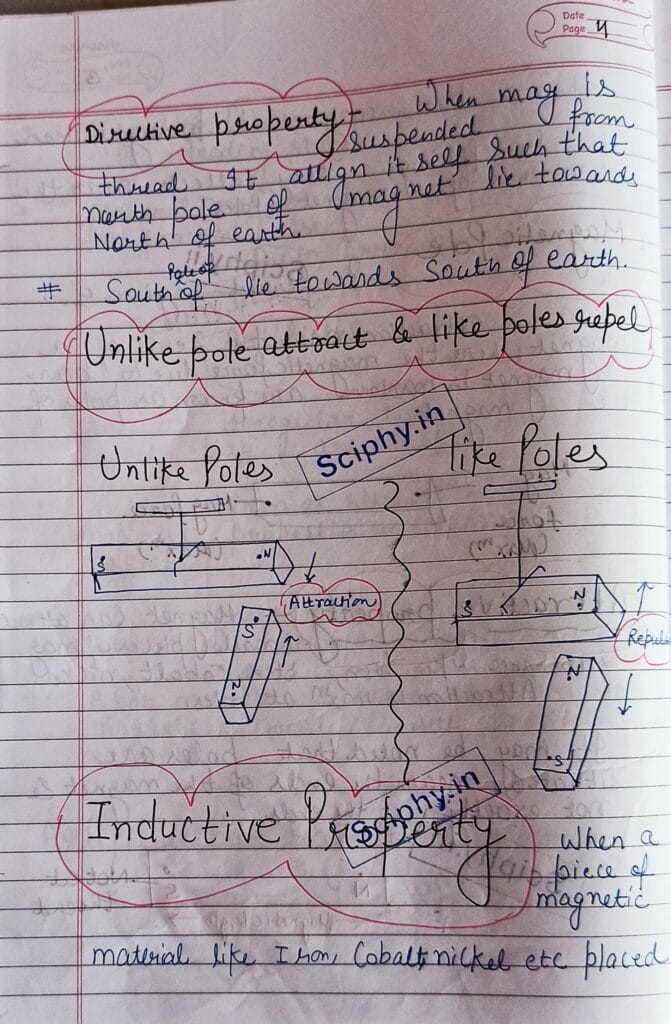 Date
Page 4
Directive property - When mag is
suspended from
thread It allign it self such that
north pole of magnet lie towards
North of earth
# South Pole of lie towards South of earth.
Unlike pole attract & like poles repel
Sciphy.in
Unlike Poles
like Poles
S .N
Attraction
S
N
S N
Repul
N
S
Inductive Property
Sciphy.in
When a
piece of
magnetic
material like Iron, Cobalt, nickel etc placed